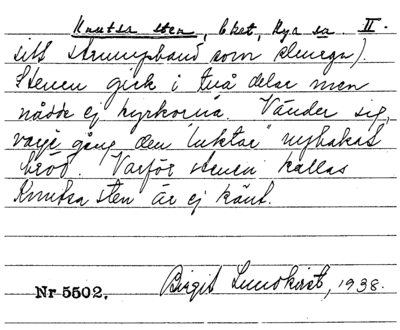 Knutsa sten, Eket, Rya sn. II.
sitt strumpband som slunga).
Stenen gick i två delar men
nådde ej kyrkorna. Vänder sig,
varje gång den "luktar" nybakat
bröd. Varför stenen kallas
Knutsa sten är ej känt.
Nr 5502. Birgit Lundkvist, 1938.